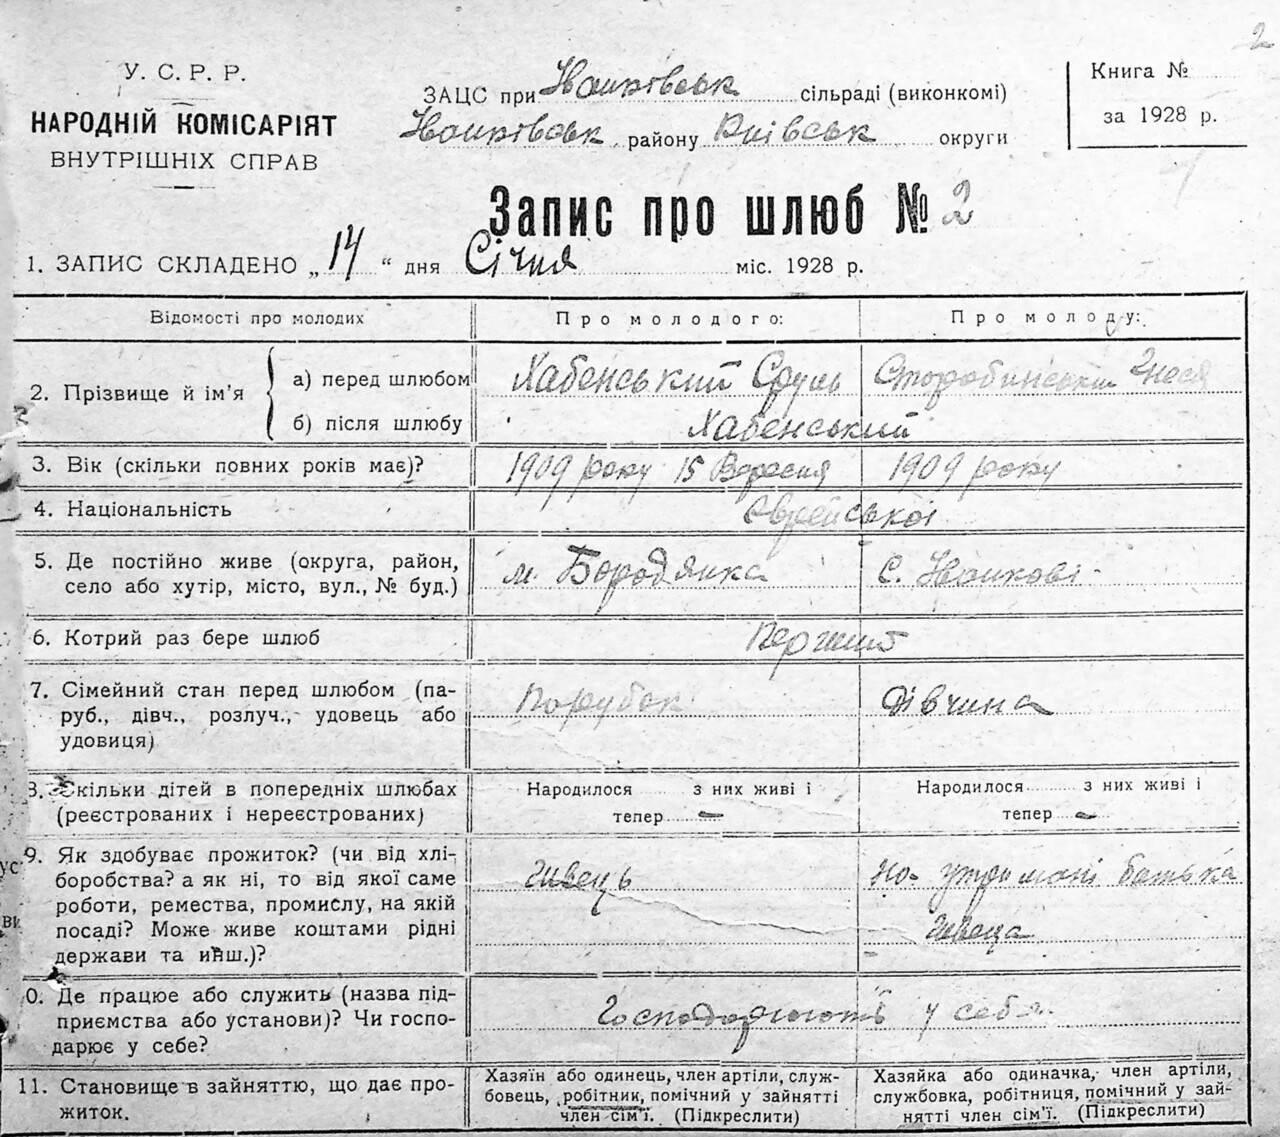 2
У. С. Р. Р.
НАРОДНІЙ КОМІСАРІЯТ
ВНУТРІШНІХ СПРАВ
ЗАЦС при сільраді (виконкомі)
району Київськ округи
Книга №
за 1928 р.
Запис про шлюб № 2
1. ЗАПИС СКЛАДЕНО „14“ дня Січня міс. 1928 р.
Відомості про молодих
Про молодого:
Про молоду:
2. Прізвище й ім’я
а) перед шлюбом
Хабенський Сруль
б) після шлюбу
Хабенський
3. Вік (скільки повних років має)?
1909 року 15 Вересня
1909 року
4. Національність
Єврейської
5. Де постійно живе (округа, район,
село або хутір, місто, вул., № буд.)
м. Бородянка
с.
6. Котрий раз бере шлюб
7. Сімейний стан перед шлюбом (па-
руб., дівч., розлуч., удовець або
удовиця)
Порубок
Дівчина
8. Скільки дітей в попередніх шлюбах
(реєстрованих і нереєстрованих)
Народилося з них живі і
тепер –
Народилося з них живі і
тепер –
9. Як здобуває прожиток? (чи від хлі-
боробства? а як ні, то від якої саме
роботи, ремества, промислу, на якій
посаді? Може живе коштами рідні
держави та инш.)?
Швець
На утримані батька
Швеца
0. Де працює або служить (назва під-
приємства або установи)? Чи госпо-
дарює у себе?
Господарюють у себя
11. Становище в зайняттю, що дає про-
житок.
Хазяїн або одинець, член артіли, служ-
бовець, робітник, помічний у зайнятті
член сім’ї. (Підкреслити)
Хазяйка або одиначка, член артіли,
службовка, робітниця, помічний у зай-
нятті член сім’ї. (Підкреслити)